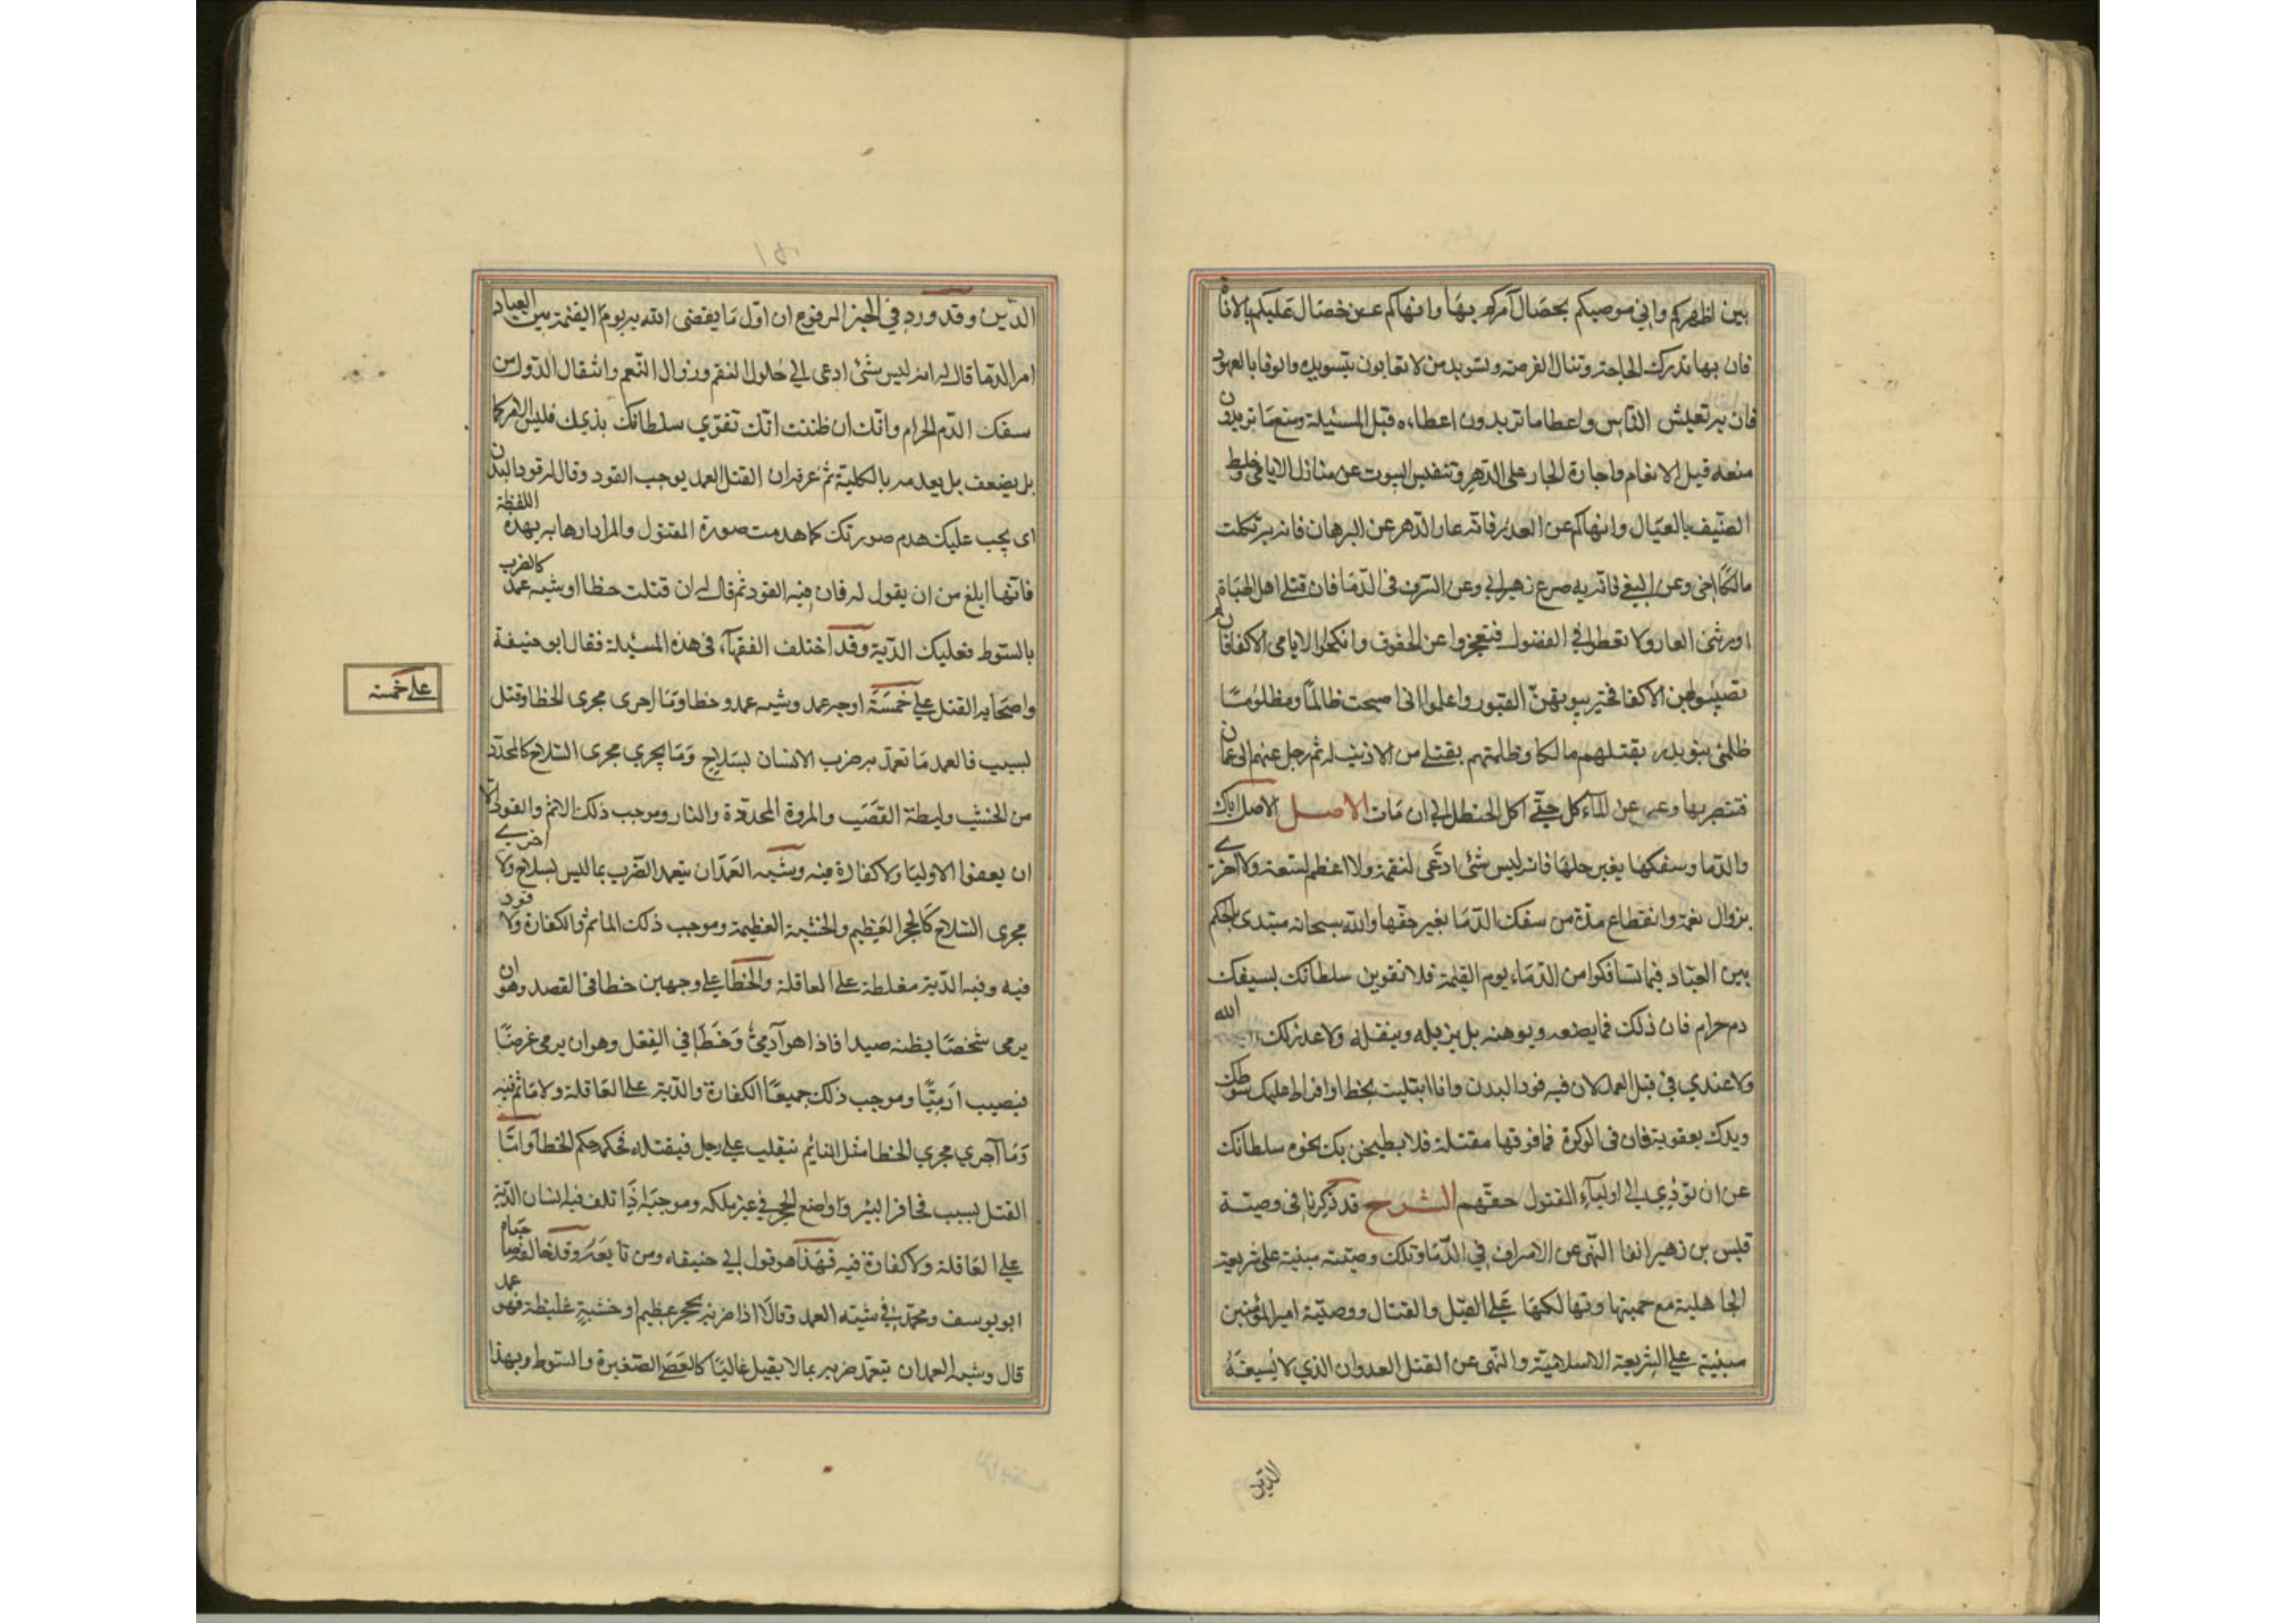 بين اظهركم واني موصيكم بخصال آمركم بها وانهاكم عن خصال عليكم بالاناة
فان بها تدرك الحاجة وتنال الفرصة وتسويد من لا تعابون بتسويده والوفا بالعهود
فان به تعيش الناس واعطا ما تريدون اعطاءه قبل المسئلة ومنع ما تريدون
منعه قبل الانعام واجارة الجار على الدهر وتنفيس البيوت عن منازل الايامى وخلط
الضيف بالعيال وانهاكم عن الغدر فانه عار الدهر عن البرهان فانه به ثكلت
مالكا اخي وعن البغي فانه به صرع زهير ابي وعن السرف في الدما فان قتلي اهل الهباة
اورثني العار ولا تعطوا في الفضول فتعجزوا عن الحقوق وانكحوا الايامى الاكفا فان لم
تصيبوا بهن الاكفا فخير بيوتهن القبور واعلموا اني اصبحت ظالما ومظلوما
ظلمني بنو بدر بقتلهم مالكا وظلمتهم بقتلي من لا ذنب له ثم رحل عنهم الى عمان
فتنصر بها وعن الماكل حتى اكل الحنظل الى ان مات الاصل الاصل اياك
والدما وسفكها بغير حلها فانه ليس شئ ادعى لنقمة ولا اعظم لتبعة ولا احرى
بزوال نعمة وانقطاع مدة من سفك الدما بغير حقها والله سبحانه مبتدئ بالحكم
بين العباد فيما تسافكوا من الدماء يوم القيمة فلا تقوين سلطانك بسفك
دم حرام فان ذلك مما يضعفه ويوهنه بل يزيله وينقله ولا عذر لك عند الله
ولا عندي في قتل العمد لان فيه قود البدن وان ابتليت بخطا وافرط عليك سوطك
ويدك بعقوبة فان في الوكزة فما فوقها مقتلة فلا يطمحن بك نخوة سلطانك
عن ان تؤدي الى اولياء المقتول حقهم الشرح قد ذكرنا في وصية
قيس بن زهير انفا النهى عن الاسراف في الدما وتلك وصية مبنية على شريعة
الجاهلية مع حميتها وتهالكها على القتل والقتال ووصية امير المؤمنين
مبنية على الشريعة الاسلامية والنهى عن القتل العدوان الذي لا يسيغه
الدين
الدين وقد ورد في الخبر المرفوع ان اول ما يقضى الله به يوم القيمة بين العباد
امر الدما قال له انه ليس شئ ادعى الى حلول النقم وزوال النعم وانتقال الدول من
سفك الدم الحرام وانك ان ظننت انك تقوي سلطانك بذلك فليس الامر كما
بل يضعف بل يعدمه بالكلية ثم عرفه ان القتل العمد يوجب القود وقال له قود البدن
اى يجب عليك هدم صورتك كما هدمت صورة المقتول والمراد ارهابه بهذه اللفظة
فانها ابلغ من ان يقول له فان فيه القود ثم قال له ان قتلت خطا او شبه عمد كالضرب
بالسوط فعليك الدية وقد اختلف الفقهاء في هذه المسئلة فقال ابو حنيفة
واصحابه القتل على خمسة اوجه عمد وشبه عمد وخطا وما اجرى مجرى الخطا وقتل
على خمسة
لسبب فالعمد ما تعمد به ضرب الانسان بسلاح وما يجري مجرى السلاح كالمحدد
من الخشب وليطة القصب والمروة المحددة والنار وموجب ذلك الاثم والقود الا
ان يعفوا الاوليا ولا كفارة فيه وشبه العمد ان يتعمد الضرب بما ليس بسلاح ولا اجرى
مجرى السلاح كالحجر العظيم والخشبة العظيمة وموجب ذلك الماثم والكفارة ولا قود
فيه وفيه الدية مغلظة على العاقلة والخطا على وجهين خطا في القصد وهو ان
يرمى شخصا يظنه صيدا فاذا هو آدمي وخطا في الفعل وهو ان يرمى غرضا
فيصيب آدميا وموجب ذلك جميعا الكفارة والدية على العاقلة ولا ماثم فيه
وما اجري مجري الخطا مثل النائم ينقلب على رجل فيقتله فحكمه حكم الخطا واما
القتل بسبب فحافر البئر وواضع الحجر في غير ملكه وموجبه اذا تلف فيه انسان الدية
على العاقلة ولا كفارة فيه فهذا هو قول ابي حنيفه ومن تابعه وقد خالفه صاحباه
ابو يوسف ومحمد في شبه العمد وقالا اذا ضربه بحجر عظيم او خشبة غليظة فهو عمد
قال وشبه العمد ان يتعمد ضربه بما لا يقتل غالبا كالعصا الصغيرة والسوط وبهذا